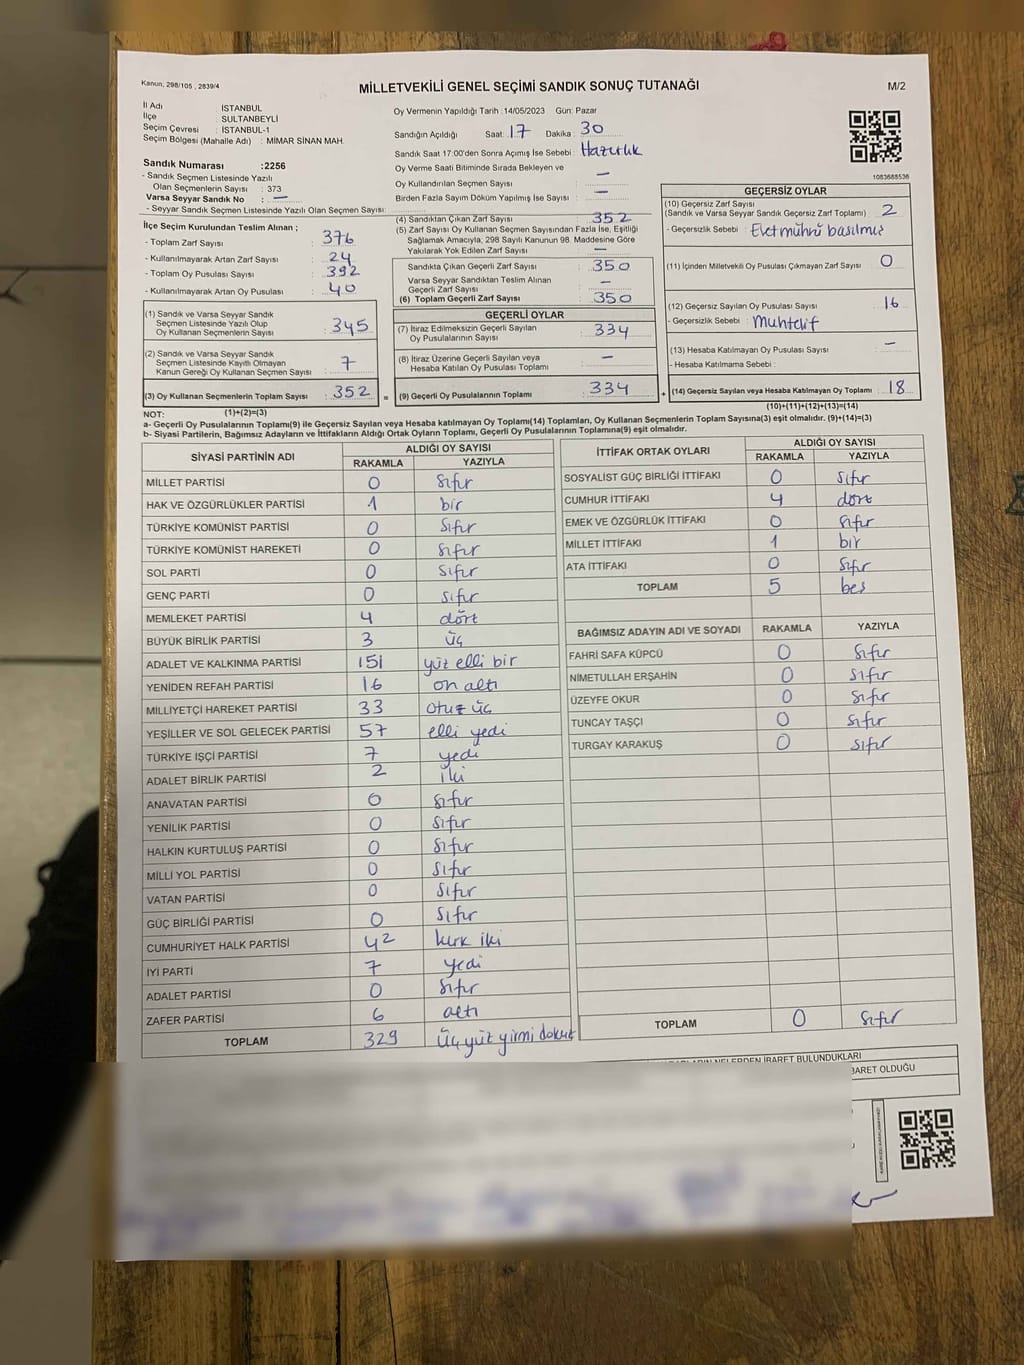 Kanun, 298/105 , 2839/4
MİLLETVEKİLİ GENEL SEÇİMİ SANDIK SONUÇ TUTANAĞI
M/2
İl Adı : İSTANBUL
İlçe : SULTANBEYLİ
Seçim Çevresi : İSTANBUL-1
Seçim Bölgesi (Mahalle Adı) : MİMAR SİNAN MAH.
Oy Vermenin Yapıldığı Tarih :14/05/2023 Gün: Pazar
Sandığın Açıldığı Saat: 17 Dakika : 30
Sandık Saat 17:00'den Sonra Açımış İse Sebebi: Hazırlık
Oy Verme Saati Bitiminde Sırada Bekleyen ve
Oy Kullandırılan Seçmen Sayısı : —
Birden Fazla Sayım Döküm Yapılmış İse Sayısı : —
1083688536
Sandık Numarası :2256
- Sandık Seçmen Listesinde Yazılı
Olan Seçmenlerin Sayısı : 373
Varsa Seyyar Sandık No : —
- Seyyar Sandık Seçmen Listesinde Yazılı Olan Seçmen Sayısı:
İlçe Seçim Kurulundan Teslim Alınan ;
- Toplam Zarf Sayısı : 376
- Kullanılmayarak Artan Zarf Sayısı : 24
- Toplam Oy Pusulası Sayısı : 392
- Kullanılmayarak Artan Oy Pusulası : 40
(1) Sandık ve Varsa Seyyar Sandık
Seçmen Listesinde Yazılı Olup
Oy Kullanan Seçmenlerin Sayısı : 345
(2) Sandık ve Varsa Seyyar Sandık
Seçmen Listesinde Kayıtlı Olmayan
Kanun Gereği Oy Kullanan Seçmen Sayısı : 7
(3) Oy Kullanan Seçmenlerin Toplam Sayısı : 352 =
(4) Sandıktan Çıkan Zarf Sayısı : 352
(5) Zarf Sayısı Oy Kullanan Seçmen Sayısından Fazla İse, Eşitliği
Sağlamak Amacıyla, 298 Sayılı Kanunun 98. Maddesine Göre
Yakılarak Yok Edilen Zarf Sayısı : —
Sandıkta Çıkan Geçerli Zarf Sayısı : 350
Varsa Seyyar Sandıktan Teslim Alınan
Geçerli Zarf Sayısı : —
(6) Toplam Geçerli Zarf Sayısı : 350
GEÇERLİ OYLAR
(7) İtiraz Edilmeksizin Geçerli Sayılan
Oy Pusulalarının Sayısı : 334
(8) İtiraz Üzerine Geçerli Sayılan veya
Hesaba Katılan Oy Pusulası Toplamı : —
(9) Geçerli Oy Pusulalarının Toplamı : 334 +
GEÇERSİZ OYLAR
(10) Geçersiz Zarf Sayısı
(Sandık ve Varsa Seyyar Sandık Geçersiz Zarf Toplamı) : 2
- Geçersizlik Sebebi : Evet mührü basılmış
(11) İçinden Milletvekili Oy Pusulası Çıkmayan Zarf Sayısı : 0
(12) Geçersiz Sayılan Oy Pusulası Sayısı : 16
- Geçersizlik Sebebi : Muhtelif
(13) Hesaba Katılmayan Oy Pusulası Sayısı : —
- Hesaba Katılmama Sebebi :
(14) Geçersiz Sayılan veya Hesaba Katılmayan Oy Toplamı : 18
NOT: (1)+(2)=(3) (10)+(11)+(12)+(13)=(14)
a- Geçerli Oy Pusulalarının Toplamı(9) ile Geçersiz Sayılan veya Hesaba katılmayan Oy Toplamı(14) Toplamları, Oy Kullanan Seçmenlerin Toplam Sayısına(3) eşit olmalıdır. (9)+(14)=(3)
b- Siyasi Partilerin, Bağımsız Adayların ve İttifakların Aldığı Ortak Oyların Toplamı, Geçerli Oy Pusulalarının Toplamına(9) eşit olmalıdır.
SİYASİ PARTİNİN ADI ALDIĞI OY SAYISI
RAKAMLA YAZIYLA
MİLLET PARTİSİ 0 sıfır
HAK VE ÖZGÜRLÜKLER PARTİSİ 1 bir
TÜRKİYE KOMÜNİST PARTİSİ 0 sıfır
TÜRKİYE KOMÜNİST HAREKETİ 0 sıfır
SOL PARTİ 0 sıfır
GENÇ PARTİ 0 sıfır
MEMLEKET PARTİSİ 4 dört
BÜYÜK BİRLİK PARTİSİ 3 üç
ADALET VE KALKINMA PARTİSİ 151 yüz elli bir
YENİDEN REFAH PARTİSİ 16 on altı
MİLLİYETÇİ HAREKET PARTİSİ 33 otuz üç
YEŞİLLER VE SOL GELECEK PARTİSİ 57 elli yedi
TÜRKİYE İŞÇİ PARTİSİ 7 yedi
ADALET BİRLİK PARTİSİ 2 iki
ANAVATAN PARTİSİ 0 sıfır
YENİLİK PARTİSİ 0 sıfır
HALKIN KURTULUŞ PARTİSİ 0 sıfır
MİLLİ YOL PARTİSİ 0 sıfır
VATAN PARTİSİ 0 sıfır
GÜÇ BİRLİĞİ PARTİSİ 0 sıfır
CUMHURİYET HALK PARTİSİ 42 kırk iki
İYİ PARTİ 7 yedi
ADALET PARTİSİ 0 sıfır
ZAFER PARTİSİ 6 altı
TOPLAM 329 üçyüz yirmi dokuz
İTTİFAK ORTAK OYLARI ALDIĞI OY SAYISI
RAKAMLA YAZIYLA
SOSYALİST GÜÇ BİRLİĞİ İTTİFAKI 0 sıfır
CUMHUR İTTİFAKI 4 dört
EMEK VE ÖZGÜRLÜK İTTİFAKI 0 sıfır
MİLLET İTTİFAKI 1 bir
ATA İTTİFAKI 0 sıfır
TOPLAM 5 beş
BAĞIMSIZ ADAYIN ADI VE SOYADI RAKAMLA YAZIYLA
FAHRİ SAFA KÜPCÜ 0 sıfır
NİMETULLAH ERŞAHİN 0 sıfır
ÜZEYFE OKUR 0 sıfır
TUNCAY TAŞÇI 0 sıfır
TURGAY KARAKUŞ 0 sıfır
TOPLAM 0 sıfır
NELERDEN İBARET BULUNDUKLARI
BARET OLDUĞU